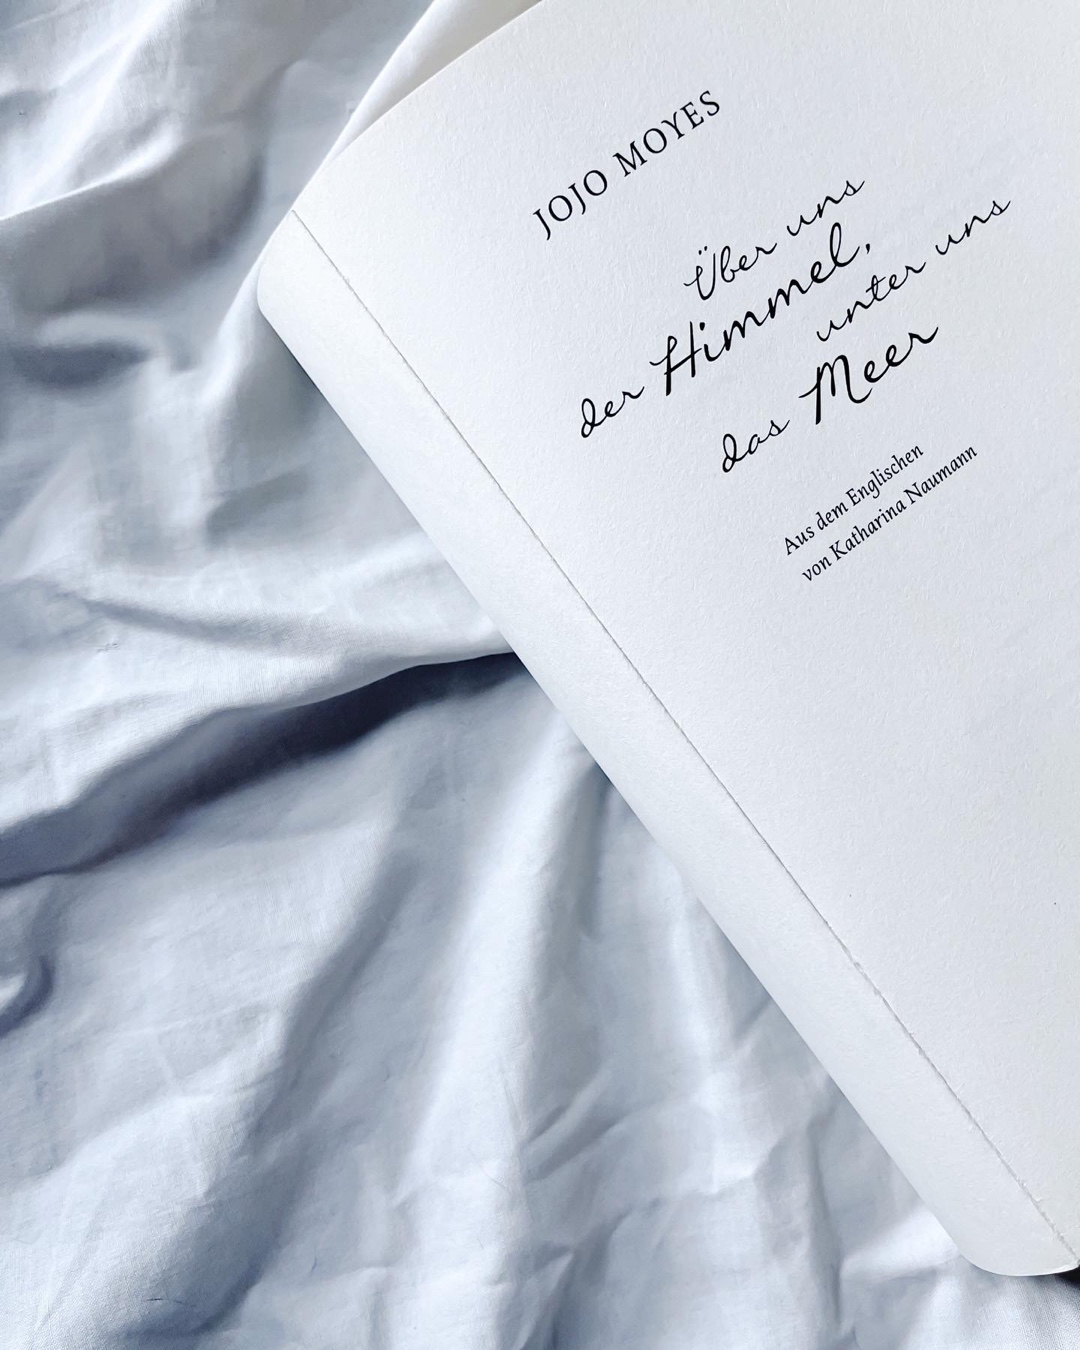 JOJO MOYES
Über uns
der Himmel,
unter uns
das Meer
Aus dem Englischen
von Katharina Naumann